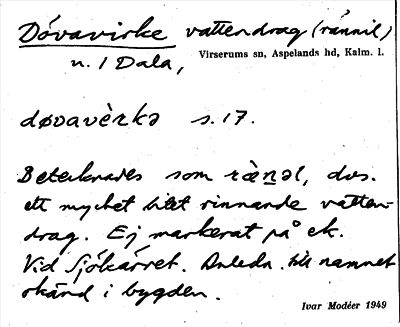 Dövavirke vattendrag (rännil)
Virserums sn, Aspelands hd, Kalm. l.
n. 1 Dala,
døvavèrkə s. 17.
Betecknades som rä̀nəl, dvs.
ett mycket litet rinnande vatten-
drag. Ej markerat på ek.
Vid Sjökärret. Anledn. till namnet
okänd i bygden.
Ivar Modéer 1949